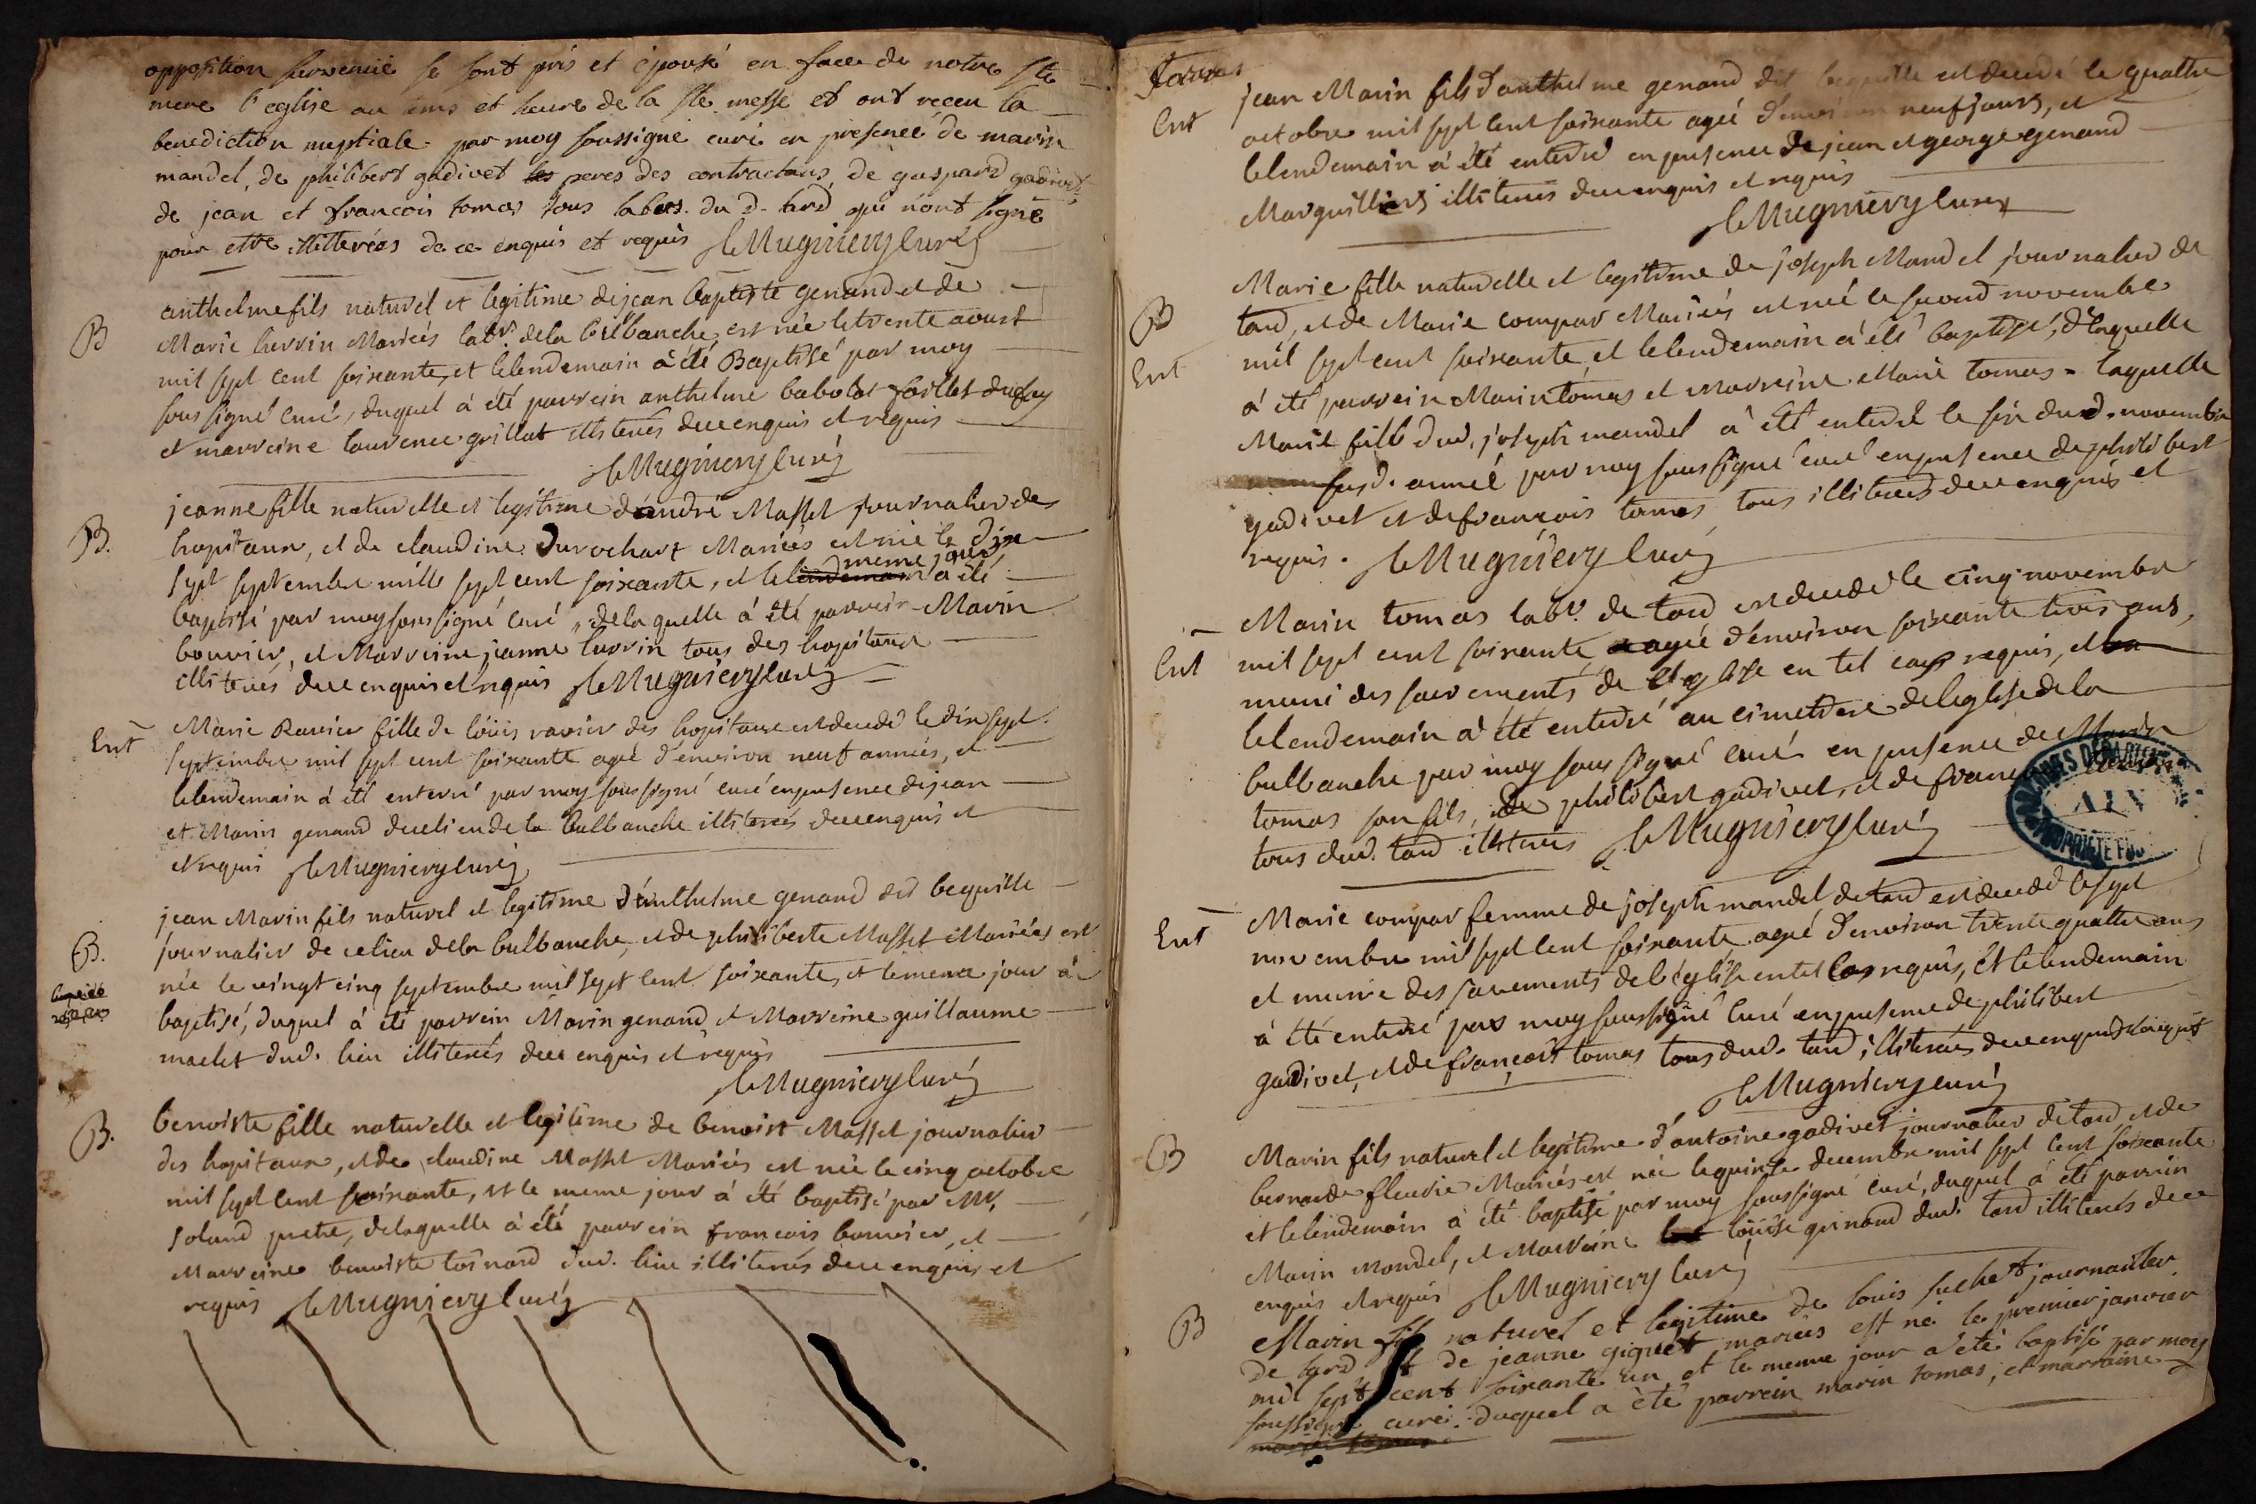 opposition survenüe se sont pris et épousé en face de notre Ste
mere l'eglise au tems et heure de la Ste messe et ont receu la
benediction nuptiale par moy soussigné curé en presence de marin
mandel, de philibert gadivet les peres des contractans, de gaspard gadivet
de jean et francois tomas tous labrs. du d. tard qui n'ont signé
pour etre illitterées de ce enquis et requis Mugniery curé
B
anthelme fils naturel et legitime de jean baptiste genand et de
Marie Mariées labr. dela bulbanche, est née le trente aoust
mil sept cent soixante, et le lendemain à été Baptisé par moy
sous signé curé, duquel à été parrein anthelme
et marreine laurence grillat illiterés de ce enquis et requis
Mugniery curé
B.
jeanne fille naturelle et legitime d'andré Masset journalier des
hopitaux, et de claudine Durochat Mariées est née le dix
sept septembre mille sept cent soixante, et le lendemain meme jour à été
baptisé par moy sous signé curé, de laquelle à été parrein Marin
bouvier, et Marreine jeanne tous des hopitaux
illiterés de ce enquis et requis Mugniery curé
Ent
Marie Ravier fille de loüis ravier des hopitaux est decedé le dix sept
septembre mil sept cent soixante agé d'environ neuf années, et
le lendemain à été enterré par moy sous signé curé en presence de jean
et Marin genand de ce lieu de la bulbanche illiterés de ce enquis et
et requis Mugniery curé
B.
jean Marin fils naturel et legitime d'anthelme genand dit bequille
journalier de ce lieu dela bulbanche, et de philiberte Masset Mariées est
née le vingt cinq septembre mil sept cent soixante, et le meme jour à
baptisé, duquel à été parrein Marin genand, et Marreine guillaume
maclet dud. lieu illiterés de ce enquis et requis
Mugniery curé
B.
benoiste fille naturelle et legitime de benoist Masset journalier
des hopitaux, et de claudine Masset Mariées est née le cinq octobre
mil sept cent soixante, et le meme jour à été baptisé par Mr.
Soland pretre, de laquelle à été parrein francois bouvier, et
Marreine benoiste toinard dud. lieu illiterés de ce enquis et
requis Mugniery curé
Ent
jean Marin fils d'anthelme genand dit bequille est decedé le quattre
octobre mil sept cent soixante agé d'environ neuf jours, et
le lendemain à été enterré en presence de jean et george genand
Marguilliers illiterés de ce enquis et requis
Mugniery curé
B
Ent
Marie fille naturelle et legitime de joseph Mandel journalier de
tard, et de Marie compar Mariées est née le second novembre
mil sept cent soixante, et le lendemain à été baptisé, de laquelle
à été parrein Marin tomas et marreine Marie tomas - laquelle
Marie fille dud. joseph mandel à été enterré le six dud. novembre
susd. année par moy sous signé curé en presence de philibert
gadivet et de françois tomas tous illiterés de ce enquis et
requis. Mugniery curé
Ent
Marin tomas labr. de tard est decedé le cinq novembre
mil sept cent soixante, agé d'environ soixante trois ans,
muni des sacrements de l'eglise en tel cas requis, et
le lendemain à été enterré au cimetiere de leglise de la
bulbanche par moy sous signé curé en presence de Marin
tomas son fils, de philibert gadivet, et de
tous dud. tard illiterés Mugniery curé
ARCHIVES DEPARTEMENTALES
AIN
PROPRIETE PUB
Ent
Marie compar femme de joseph mandel de tard est decedé le sept
novembre mil sept cent soixante agé d'environ trente quattre ans
et munie des sacrements de l'église en tel cas requis, et le lendemain
à été enterré par moy sous signé curé en presence de philibert
gadivet, et de françois tomas tous dud. tard, illiterés de ce enquis et requis
Mugniery curé
B
Marin fils naturel et legitime d'antoine gadivet journalier de tard et de
bernarde fleurie Mariés est née le quinze decembre mil sept cent soixante
et le lendemain à été baptisé par moy soussigné curé, duquel à été parrein
Marin Mandel, et Marreine loüise guinand dud. tard illiterés de ce
enquis et requis Mugniery curé
B
Marin fils naturel et legitime de louis suchet journaillier
de tard et de jeanne giguet mariées est né le premier janvier
mil sept cent soixante un, et le meme jour a été baptisé par moy
soussigné curé. duquel a été parrein marin tomas, et marraine